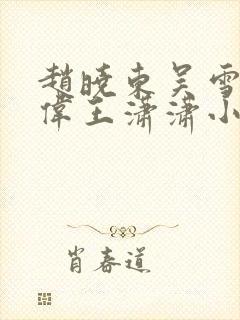 趙曉東吳雪
偉王瀟瀟小
肖春道